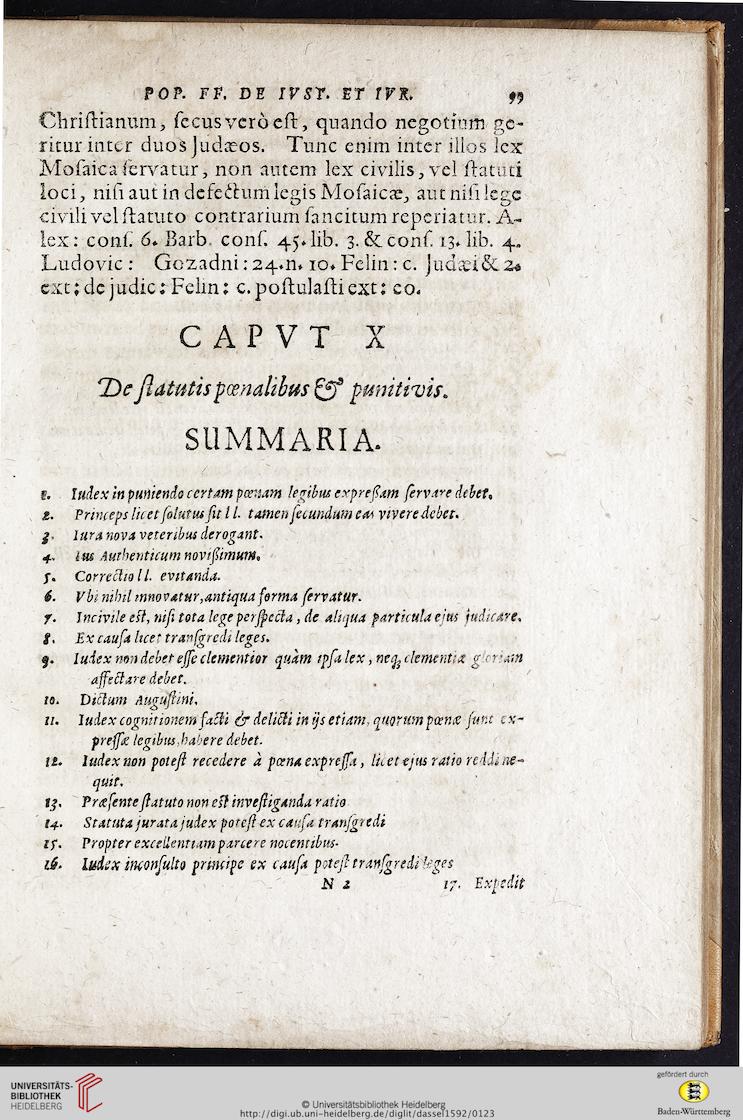 POP. FF. DE IVST. ET IVR. 99
Chriſtianum, ſecus verò eſt, quando negotium ge-
ritur inter duos Judæos. Tunc enim inter illos lex
Moſaica ſervatur, non autem lex civilis, vel ſtatuti
loci, niſi aut in defectum legis Moſaicæ, aut niſi lege
civili vel ſtatuto contrarium ſancitum reperiatur. A-
lex: conſ. 6. Barb. conſ. 45. lib. 3. & conſ. 13. lib. 4.
Ludovic: Gozadni: 24. n. 10. Felin: c. Judæi & 2.
ext: de judic: Felin: c. poſtulaſti ext: eo.
CAPVT X
De ſtatutis pœnalibus & punitivis.
SUMMARIA.
1. Iudex in puniendo certam pœnam legibus expreßam ſervare debet.
2. Princeps licet ſolutus ſit ll. tamen ſecundum eas vivere debet.
3. Iura nova veteribus derogant.
4. Ius Authenticum novißimum.
5. Correctio ll. evitanda.
6. Vbi nihil innovatur, antiqua forma ſervatur.
7. Incivile eſt, niſi tota lege perſpecta, de aliqua particula ejus judicare.
8. Ex cauſa licet tranſgredi leges.
9. Iudex non debet eſſe clementior quàm ipſa lex, neq; clementiæ gloriam
affectare debet.
10. Dictum Auguſtini.
11. Iudex cognitionem facti & delicti in ijs etiam, quorum pœnæ ſunt ex-
preſſæ legibus, habere debet.
12. Iudex non poteſt recedere à pœna expreſſa, licet ejus ratio reddi ne-
quit.
13. Præſente ſtatuto non eſt inveſtiganda ratio
14. Statuta jurata judex poteſt ex cauſa tranſgredi
15. Propter excellentiam parcere nocentibus.
16. Iudex inconſulto principe ex cauſa poteſt tranſgredi leges
N 2 17. Expedit
UNIVERSITÄTS-
BIBLIOTHEK
HEIDELBERG
© Universitätsbibliothek Heidelberg
http://digi.ub.uni-heidelberg.de/diglit/dassel1592/0123
gefördert durch
Baden-Württemberg